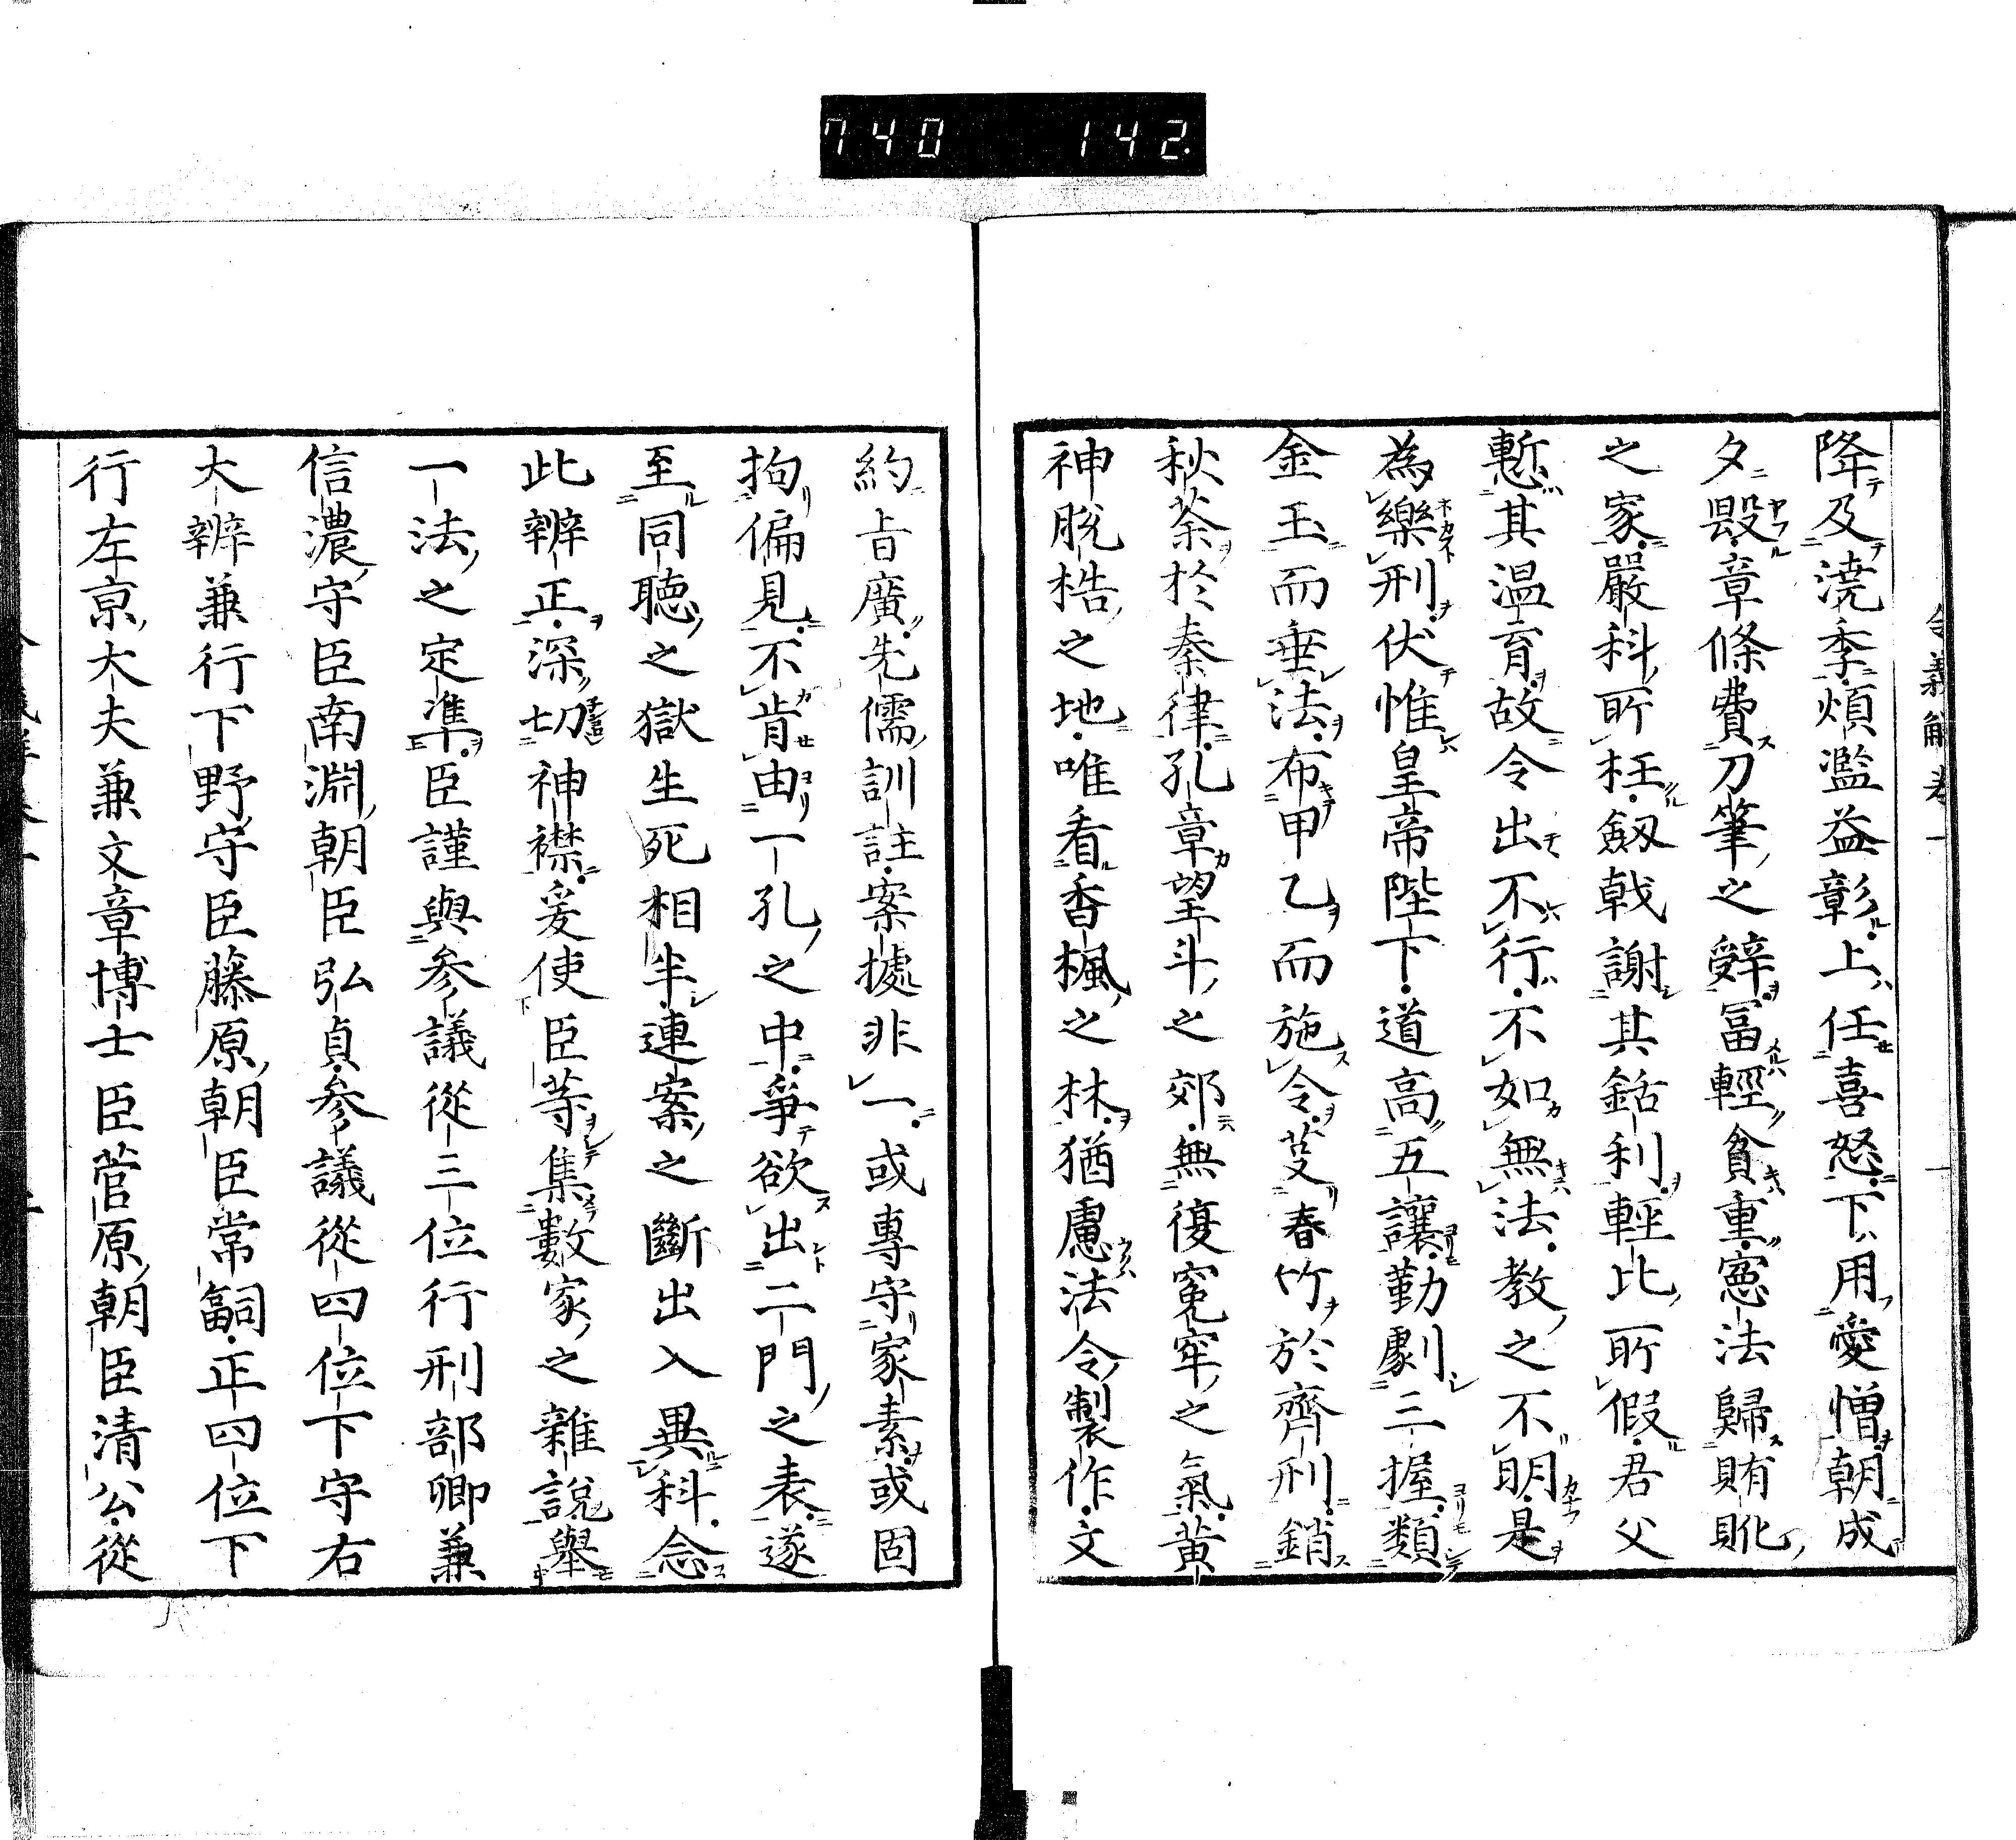 740 142
令義解卷一
降及澆季煩濫益彰上任喜怒下用愛憎朝成
夕毀章條費刀筆之辭冨輕貧重憲法歸賄貨
之家嚴科所枉劔戟謝其銛利輕比所假君父
慙其温育故令出不行不如無法教之不明是
為樂刑伏惟皇帝陛下道高五讓勤劇三握類
金玉而垂法布甲乙而施令芟春竹於齊刑銷
秋荼於秦律孔章望斗之郊無復寃牢之氣黄
神脫梏之地唯看香楓之林猶慮法令製作文
約旨廣先儒訓註案據非一或專守家素或固
拘偏見不肯由一孔之中爭欲出二門之表遂
至同聽之獄生死相半連案之斷出入異科念
此辨正深切神襟爰使臣等集數家之雜說舉
一法之定準臣謹與參議從三位行刑部卿兼
信濃守臣南淵朝臣弘貞參議從四位下守右
大辨兼行下野守臣藤原朝臣常嗣正四位下
行左京大夫兼文章博士臣菅原朝臣清公從